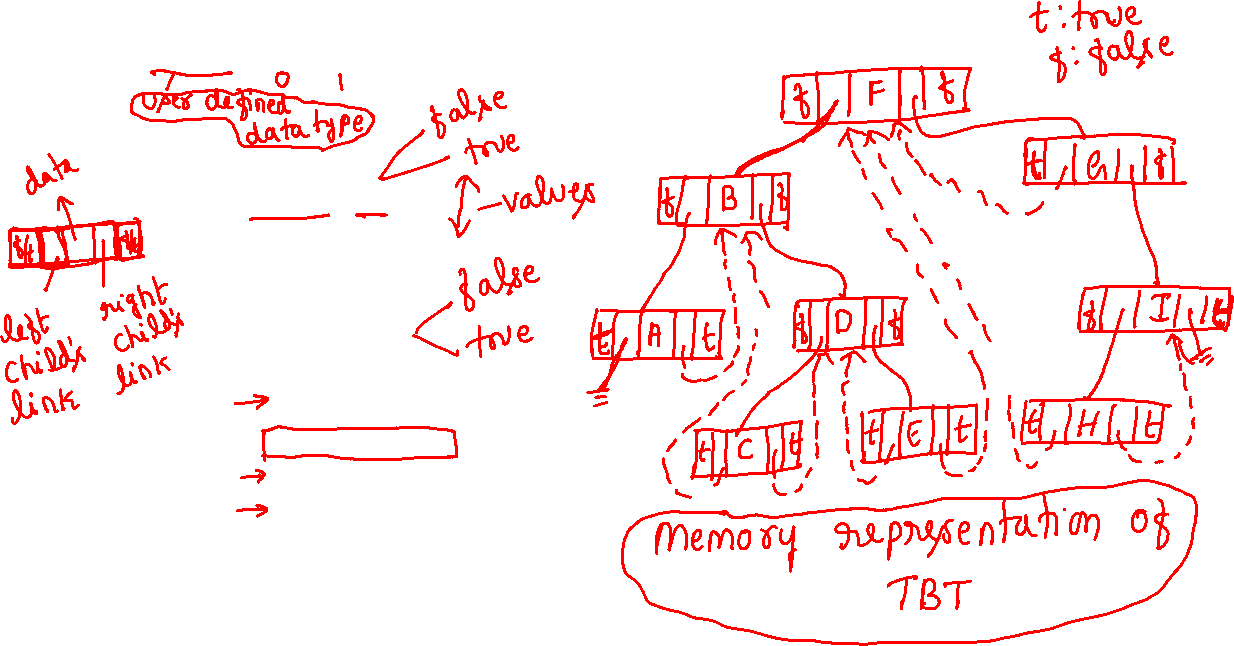 t: true
f: false
0 1
user defined
data type
false
true
values
false
true
data
f/t f/t
left
child's
link
right
child's
link
f F f
f B f
t G f
t A t
f D f
f I t
t C t
t E t
t H t
Memory representation of
TBT